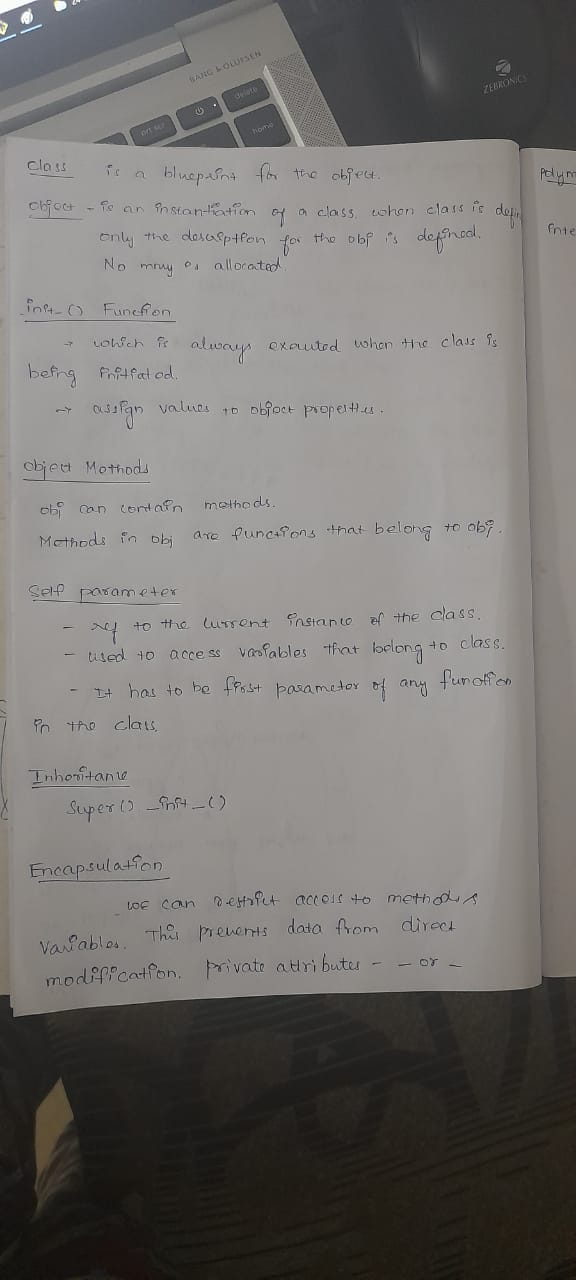 BANG & OLUFSEN
delete
prt scr
home
ZEBRONICS
Class is a blueprint for the object.
object - is an instantiation of a class. when class is defin
only the description for the obj is defined.
No mmy is allocated.
_init_() Function
→ which is always executed when the class is
being initiated.
→ assign values to object properties.
Object Methods
obj can contain methods.
Methods in obj are functions that belong to obj.
Self parameter
- ref to the current instance of the class.
- used to access variables that belong to class.
- It has to be first parameter of any function
in the class.
Inheritance
Super() _init_()
Encapsulation
we can restrict access to methods &
variables. This prevents data from direct
modification. private attributes - _ or _
Polym
Inte